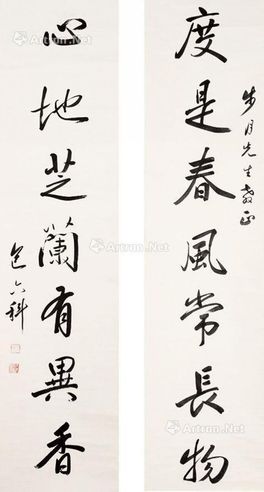 步月先生教正
度是春風常長物
心地芝蘭有異香
Artron.Net
Artron.Net
Artron.Net
Artron.Net